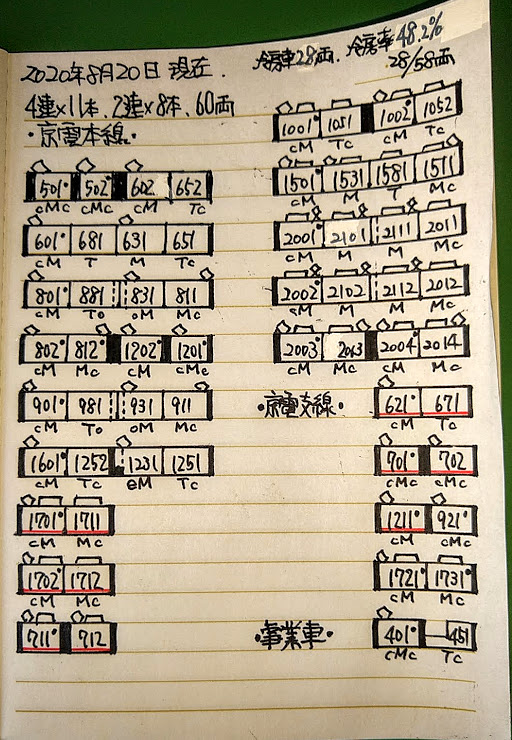 2020年8月20日 現在. 冷房車28両. 冷房率48.2%
28/58両
4連×11本、2連×8本、60両
・京電本線・
501 502 602 652
cMc cMc cM Tc
601 681 631 651
cM T M Tc
801 881 831 811
cM To oM Mc
802 812 1202 1201
cM Mc cM cMc
901 981 931 911
cM To oM Mc
1601 1252 1231 1251
cM Tc eM Tc
1701 1711
cM Mc
1702 1712
cM Mc
711 712
1001 1051 1002 1052
cM Tc cM Tc
1501 1531 1581 1511
cM M T Mc
2001 2101 2111 2011
cM M M Mc
2002 2102 2112 2012
cM M M Mc
2003 2013 2004 2014
cM Mc cM Mc
・京電支線・
621 671
cM Tc
701 702
cMc cMc
1211 921
cM cMc
1721 1731
cM Mc
・事業車・
401 451
cMc Tc